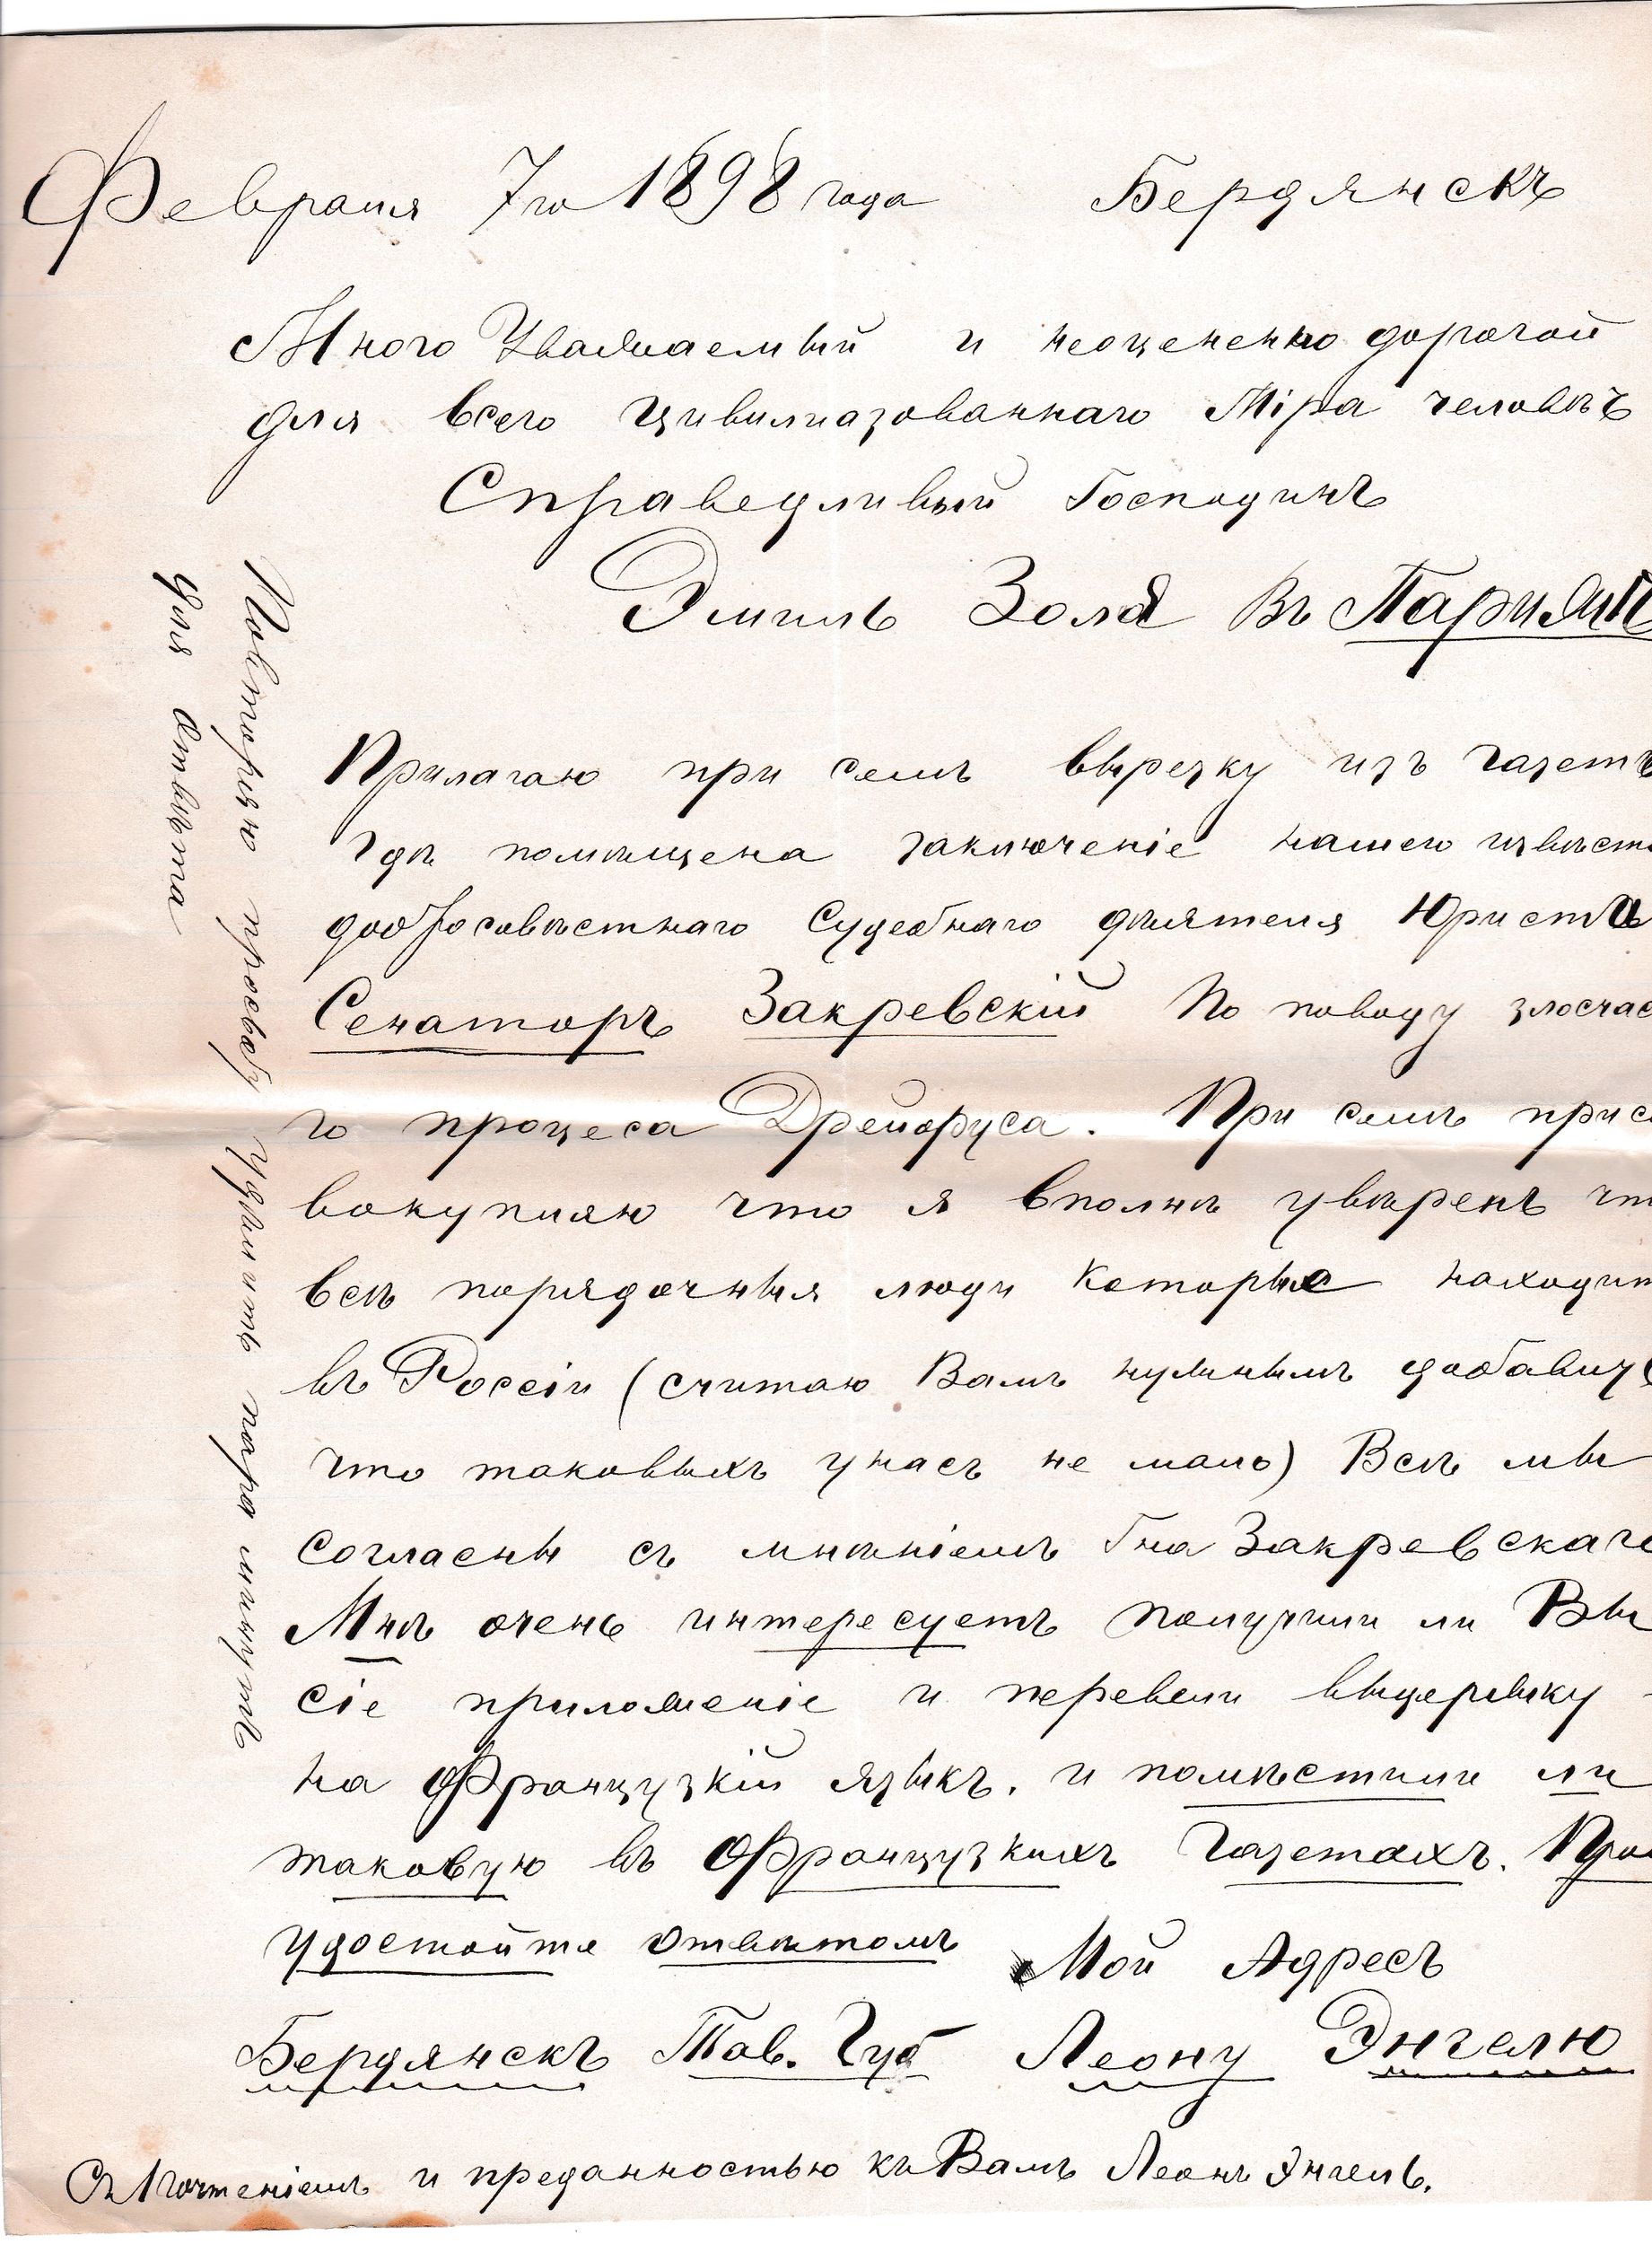 Февраля 7го 1898 года Бердянскъ
Много Уважаемый и неоцененно дорогой
для всего цивилиазованнаго Міра человѣкъ
Справедливый Господинъ
Эмиль Золя Въ Парижѣ
Прилагаю при семъ вырезку изъ газетъ
гдѣ помѣщена заключеніе нашего извѣст
добросовѣстнаго Судебнаго дѣятеля Юриста
Сенаторъ Закревскій По поводу злосчас
го процеса Дрейфуса. При семъ присо
вокупляю что я вполнѣ увѣренъ чт
всѣ порядочныя люди которые находит
въ Россіи (считаю Вамъ нужнымъ добавить
что таковыхъ унасъ не мало) Всѣ мы
согласны съ мнѣніемъ Гна Закревскаго
Мнѣ очень интересуетъ получили ли Вы
сіе приложеніе и перевели выдержку -
на Французкій языкъ. и помѣстили ли
таковую въ Французкихъ Газетахъ. Про
удостойте отвѣтомъ Мой Адресъ
Бердянскъ Тав. Губ Леону Энгелю
Съ Почтеніемъ и преданностью къ Вамъ Леонъ Энгель.
Повторяю прозьбу Удѣлить пара минутъ
для Ответа